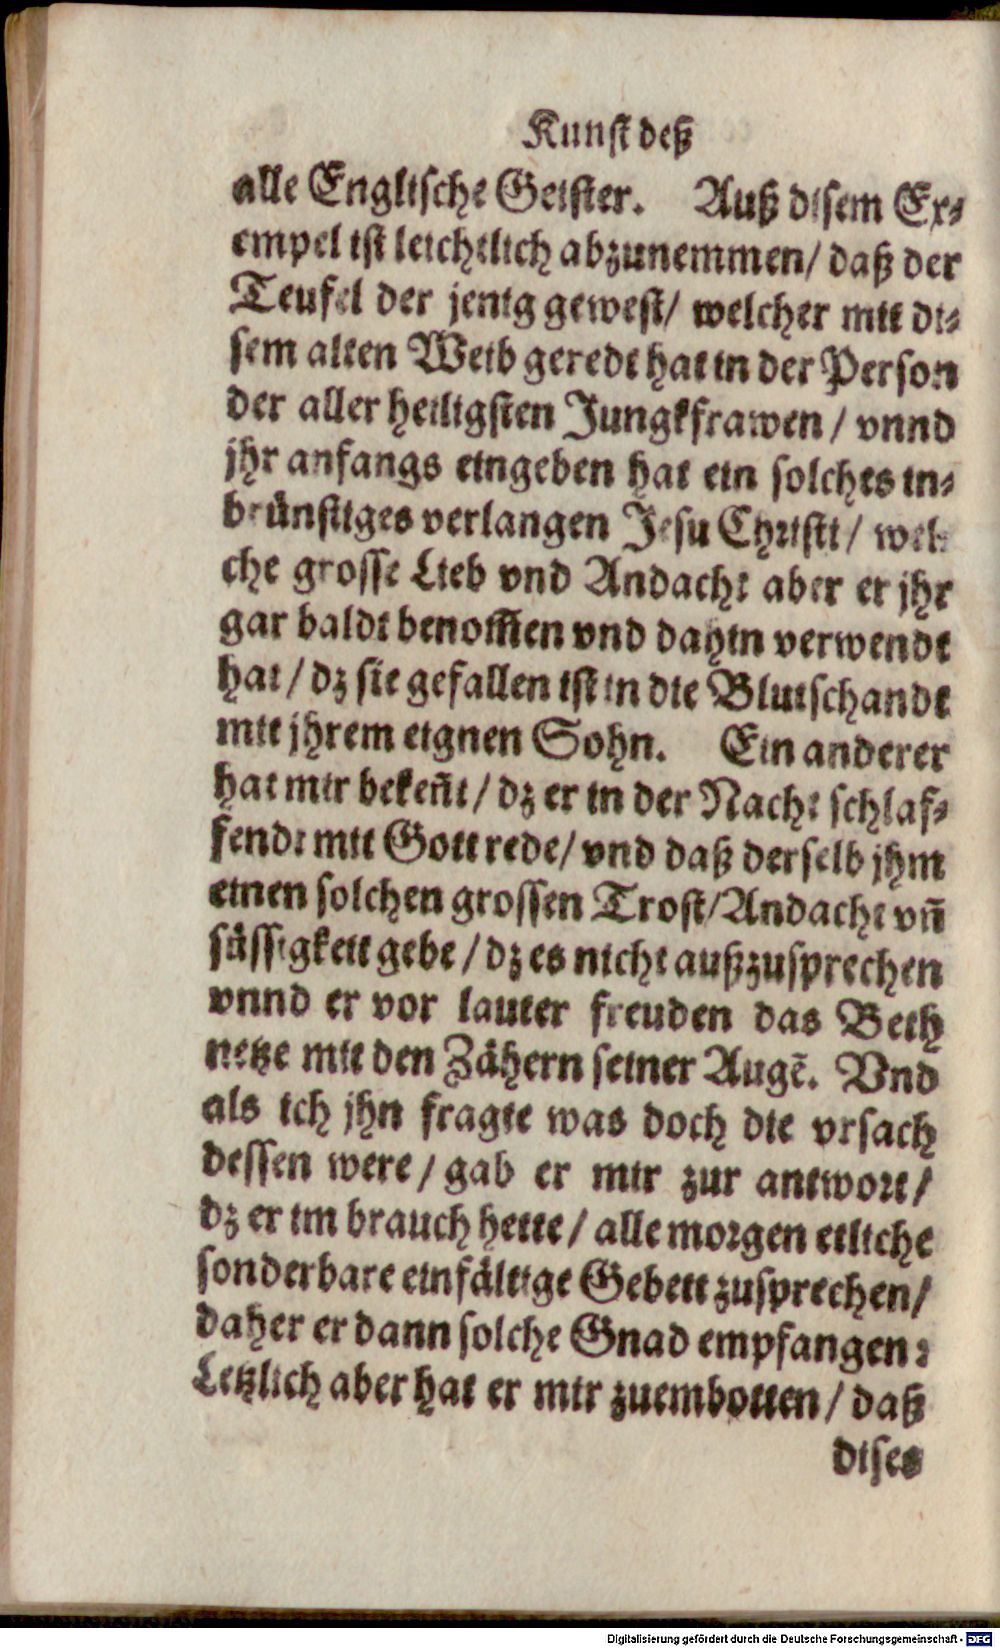 Kunst deß
alle Englische Geister. Auß disem Ex-
empel ist leichtlich abzunemmen/ daß der
Teufel der jenig gewest/ welcher mit di-
sem alten Weib geredt hat in der Person
der aller heiligsten Jungkfrawen / vnnd
jhr anfangs eingeben hat ein solches in-
brünstiges verlangen Jesu Christi / wel-
che grosse Lieb vnd Andacht aber er jhr
gar baldt benom̃en vnd dahin verwendt
hat / dz sie gefallen ist in die Blutschandt
mit jhrem eignen Sohn. Ein anderer
hat mir bekeñt / dz er in der Nacht schlaf-
fendt mit Gott rede/ vnd daß derselb jhm
einen solchen grossen Trost/ Andacht vñ
süssigkeit gebe / dz es nicht außzusprechen
vnnd er vor lauter freuden das Beth
netze mit den Zähern seiner Augẽ. Vnd
als ich jhn fragte was doch die vrsach
dessen were / gab er mir zur antwort /
dz er im brauch hette / alle morgen etliche
sonderbare einfältige Gebett zusprechen/
daher er dann solche Gnad empfangen :
Letzlich aber hat er mir zuembotten / daß
dises
Digitalisierung gefördert durch die Deutsche Forschungsgemeinschaft - DFG